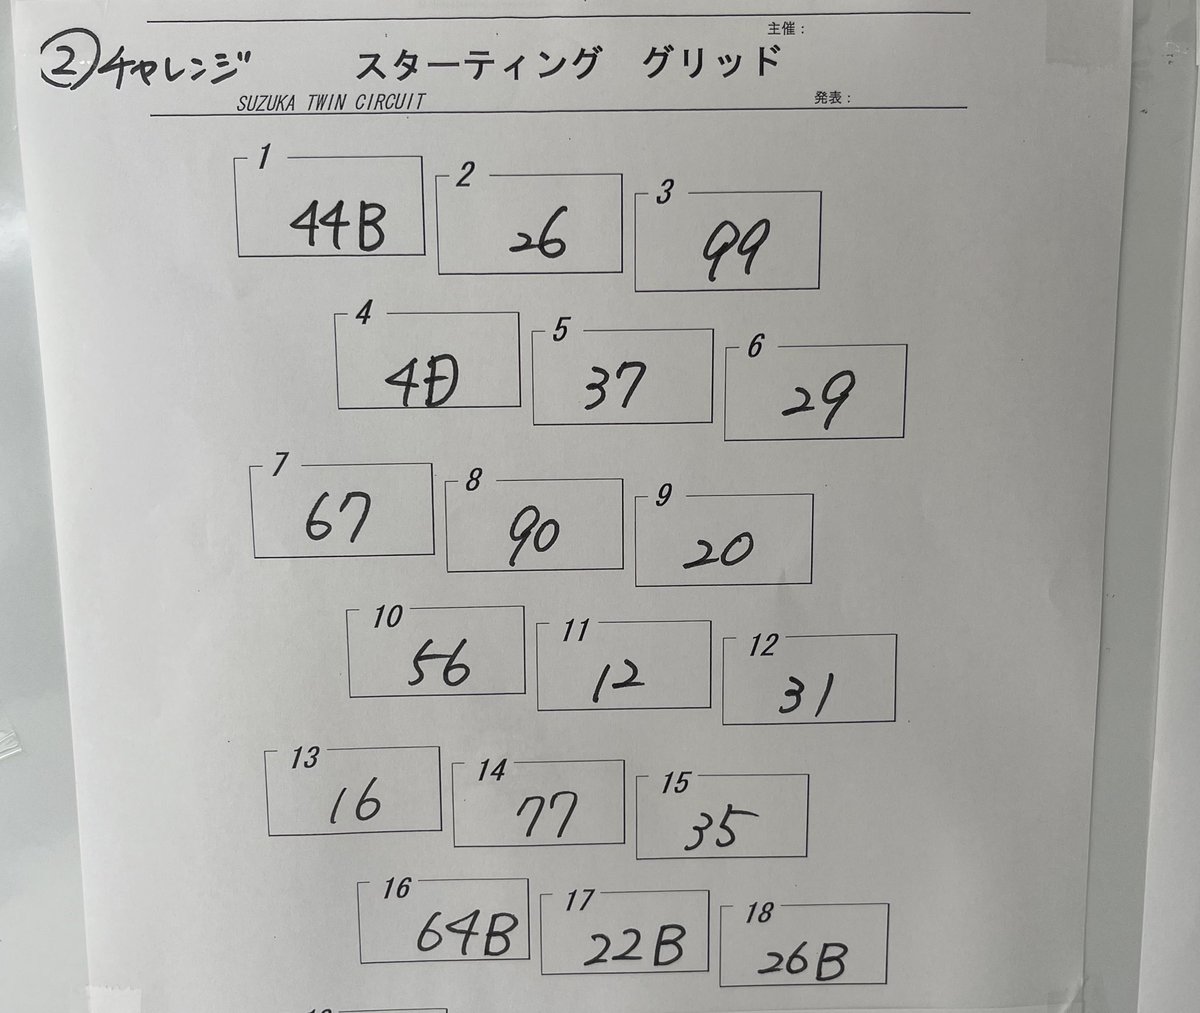 主催：
②チャレンジ スターティング グリッド
SUZUKA TWIN CIRCUIT 発表：
1 2 3
44B 26 99
4 5 6
37 29
7 8 9
67 90 20
10 11 12
56 12 31
13 14 15
16 77 35
16 17 18
64B 22B 26B